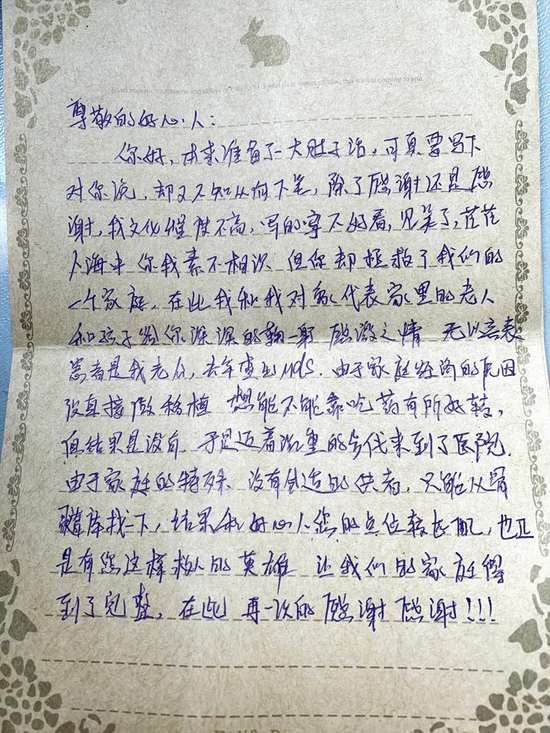 尊敬的好心人：
你好，本来准备了一大肚子话，可真要写下
对你说，却又不知从何下笔，除了感谢还是感
谢，我文化程度不高，写的字不好看，见笑了，茫茫
人海中你我素不相识 但你却拯救了我们的
一个家庭，在此我和我对家代表家里的老人
和孩子给你深深的鞠一躬 感激之情 无以言表
患者是我老公，去年查出MDS．由于家庭经济的原因
没直接做移植 想能不能靠吃药有所好转，
但结果是没有．于是迈着沉重的步伐来到了医院．
由于家庭的特殊 没有合适的供者，只能从骨
髓库找一下，结果和好心人您的点位较匹配，也正
是有您这样救人的英雄 让我们的家庭得
到了完整，在此 再一次的感谢感谢!!!